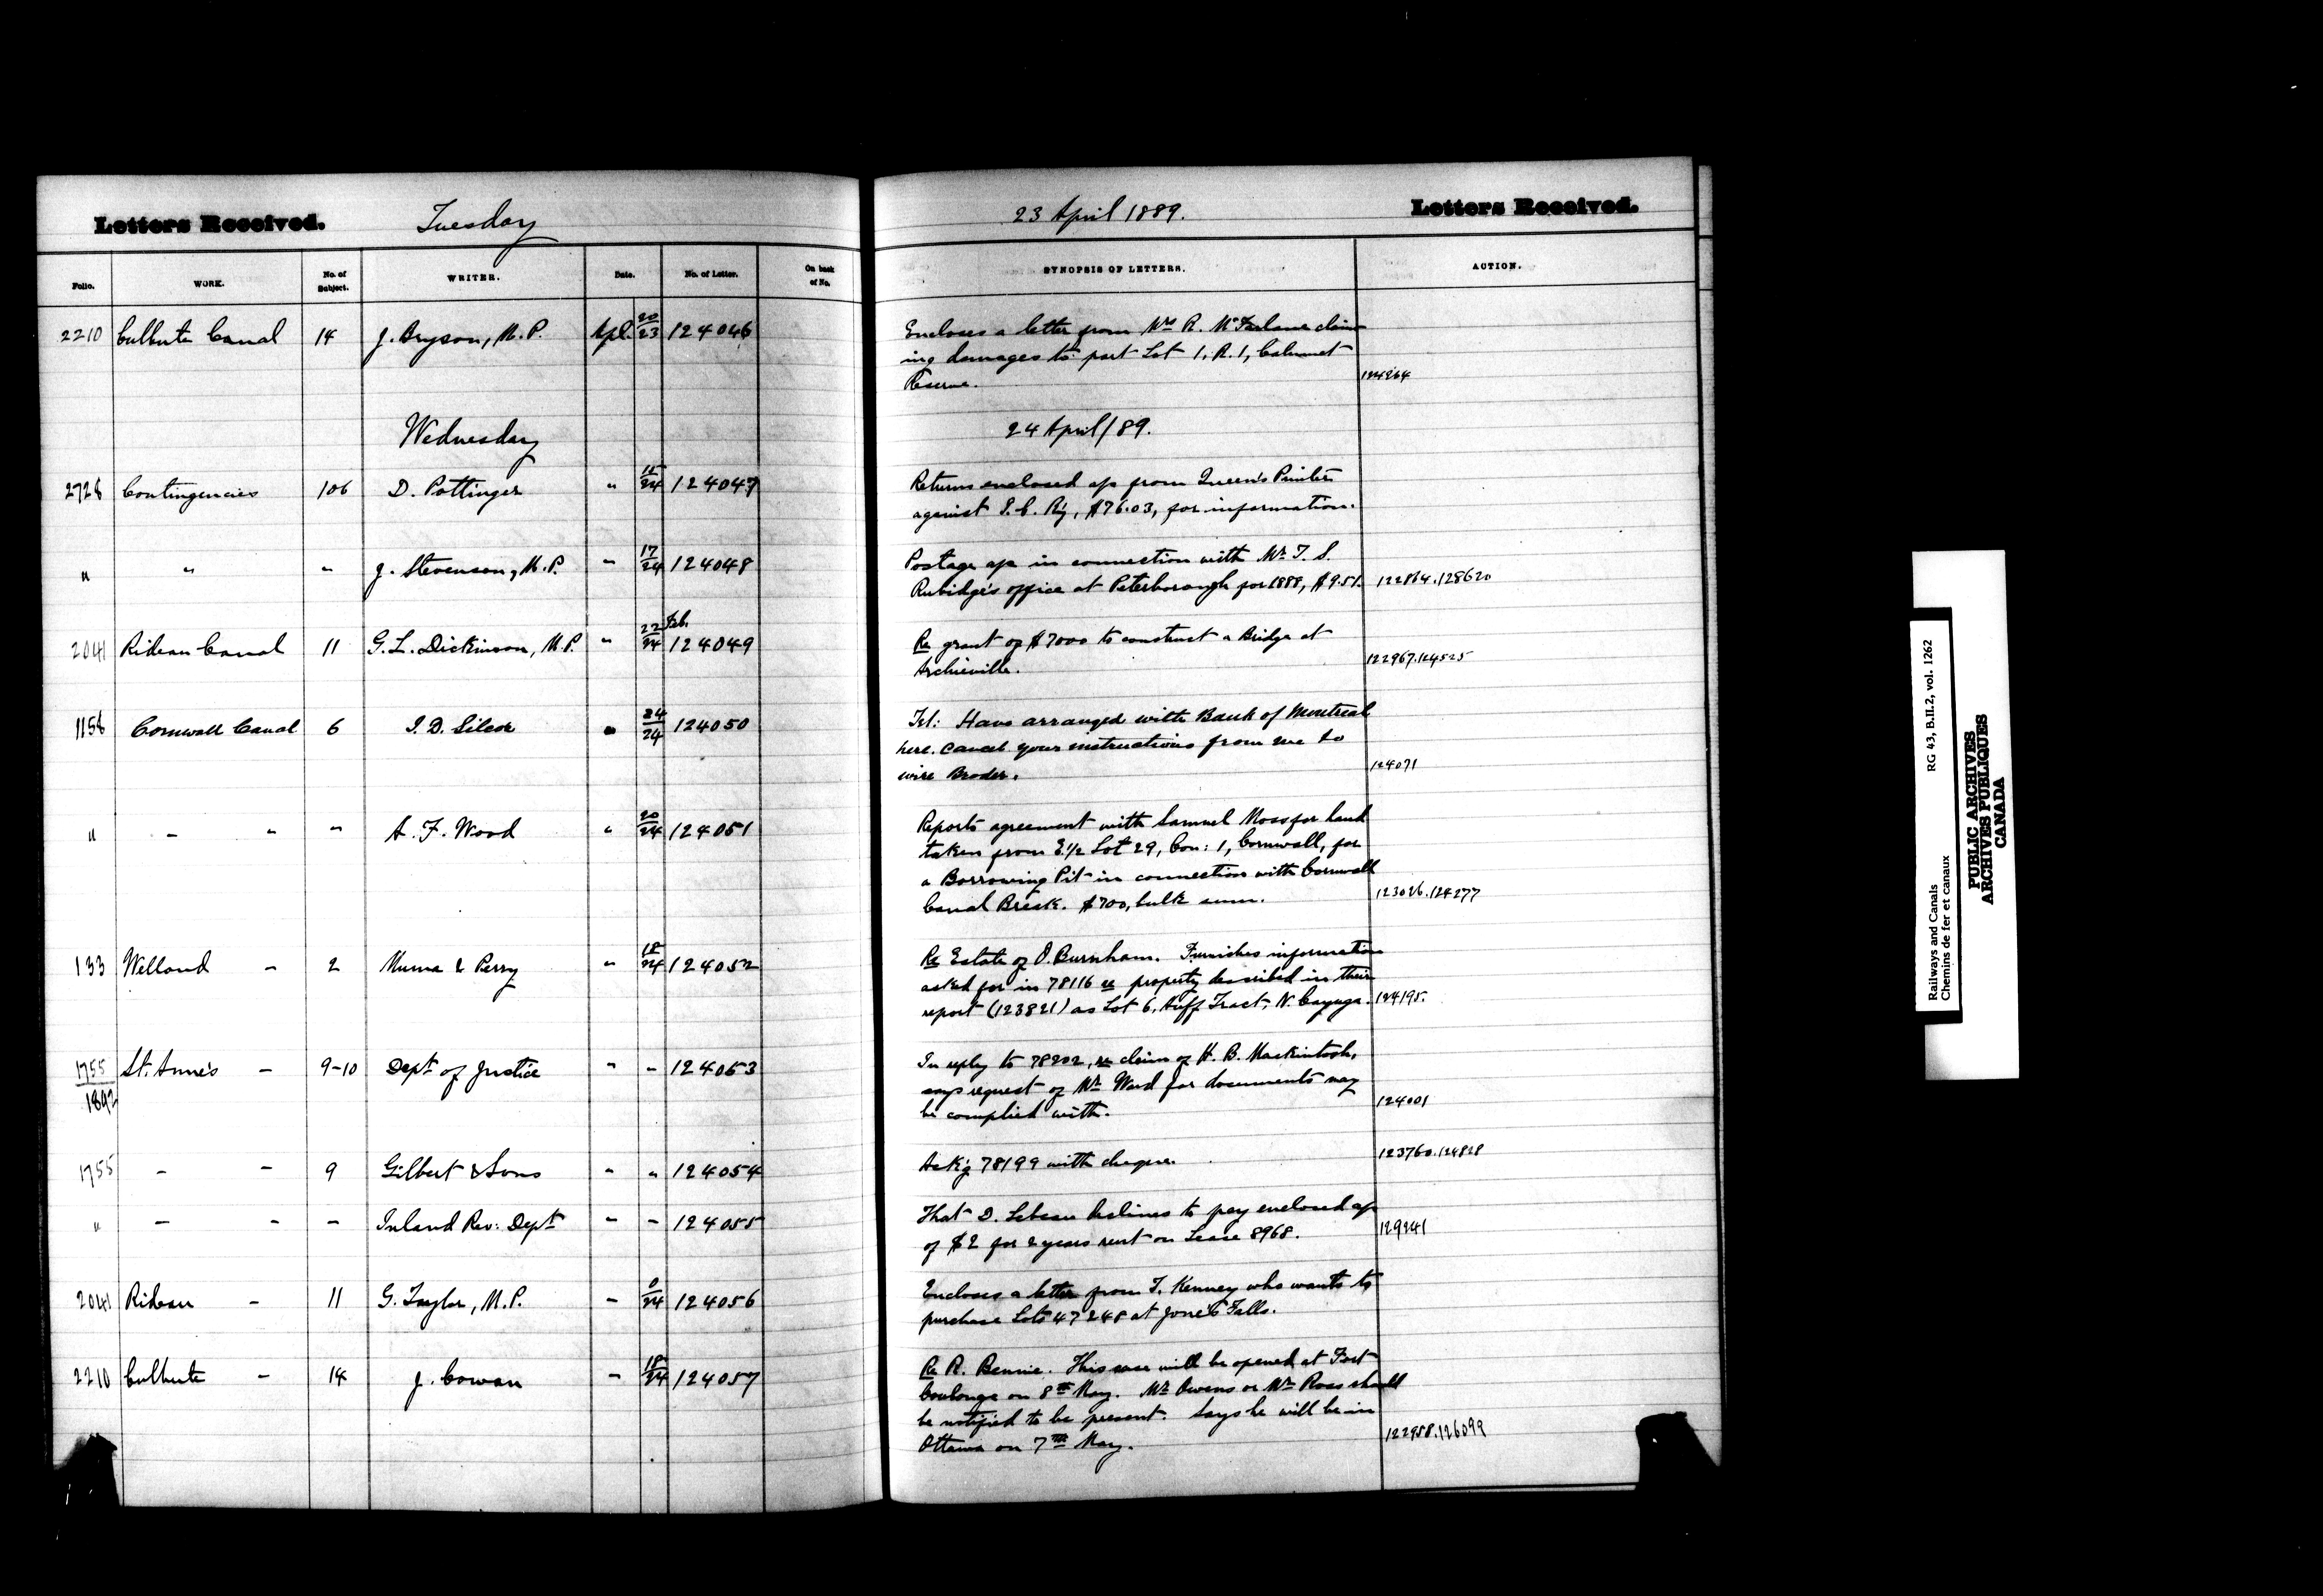 Letters Received. Tuesday
23 April 1889. Letters Received.
Folio. WORK. No. of Subject. WRITER. Date. No. of Letter. On back of No. SYNOPSIS OF LETTERS. ACTION.
2210 Culbute Canal 14 J. Bryson, M.P. Apl. 20/23 124046
Encloses a letter from Mrs R. McFarlane claim-
ing damages to part Lot 1, R. 1, Calumet
Reserve. 124264
Wednesday 24 April/89.
2728 Contingencies 106 D. Pottinger " 15/24 124047
Returns enclosed a/c from Queen's Printer
against I.C. Ry, $76.03, for information.
" " " J. Stevenson, M.P. " 17/24 124048
Postage a/c in connection with Mr T. S.
Rubidge's office at Peterborough for 1888, $9.51. 122864.128620
2041 Rideau Canal 11 G. L. Dickinson, M.P. " 22 Feb./24 124049
Re grant of $7000 to construct a Bridge at
Archieville. 122967.124525
1158 Cornwall Canal 6 I. D. Silcox " 24/24 124050
Tel: Have arranged with Bank of Montreal
here. Cancel your instructions from me to
wire Broder. 124071
" " " " A. F. Wood " 20/24 124051
Reports agreement with Samuel Moss for land
taken from E.1/2 Lot 29, Con: 1, Cornwall, for
a Borrowing Pit in connection with Cornwall
Canal Break. $700, bulk sum. 123026.124277
133 Welland " 2 Muma & Perry " 18/24 124052
Re Estate of O. Burnham. Furnishes information
asked for in 78116 re property described in their
report (123821) as Lot 6, Huff Tract, N. Cayuga. 124195.
1755/1892 St. Anne's " 9-10 Dept of Justice " " 124053
In reply to 78202, re claim of H. B. Mackintosh,
says request of Mr Ward for documents may
be complied with. 124001
1755 " " 9 Gilbert & Sons " " 124054
Ackg 78199 with cheque. 123760.124828
" " " " Inland Rev: Dept " " 124055
That D. Lebeau declines to pay enclosed a/c
of $2 for 2 years rent on Lease 8968. 129241
2041 Rideau " 11 G. Taylor, M.P. " 0/24 124056
Encloses a letter from T. Kenney who wants to
purchase Lots 47 & 48 at Jones Falls.
2210 Culbute " 14 J. Cowan " 18/24 124057
Re R. Bennie. This case will be opened at Fort
Coulonge on 8th May. Mr Owens or Mr Ross shall
be notified to be present. Says he will be in
Ottawa on 7th May. 122958.126099
Railways and Canals RG 43, B.II.2, vol. 1262
Chemins de fer et canaux
PUBLIC ARCHIVES
ARCHIVES PUBLIQUES
CANADA